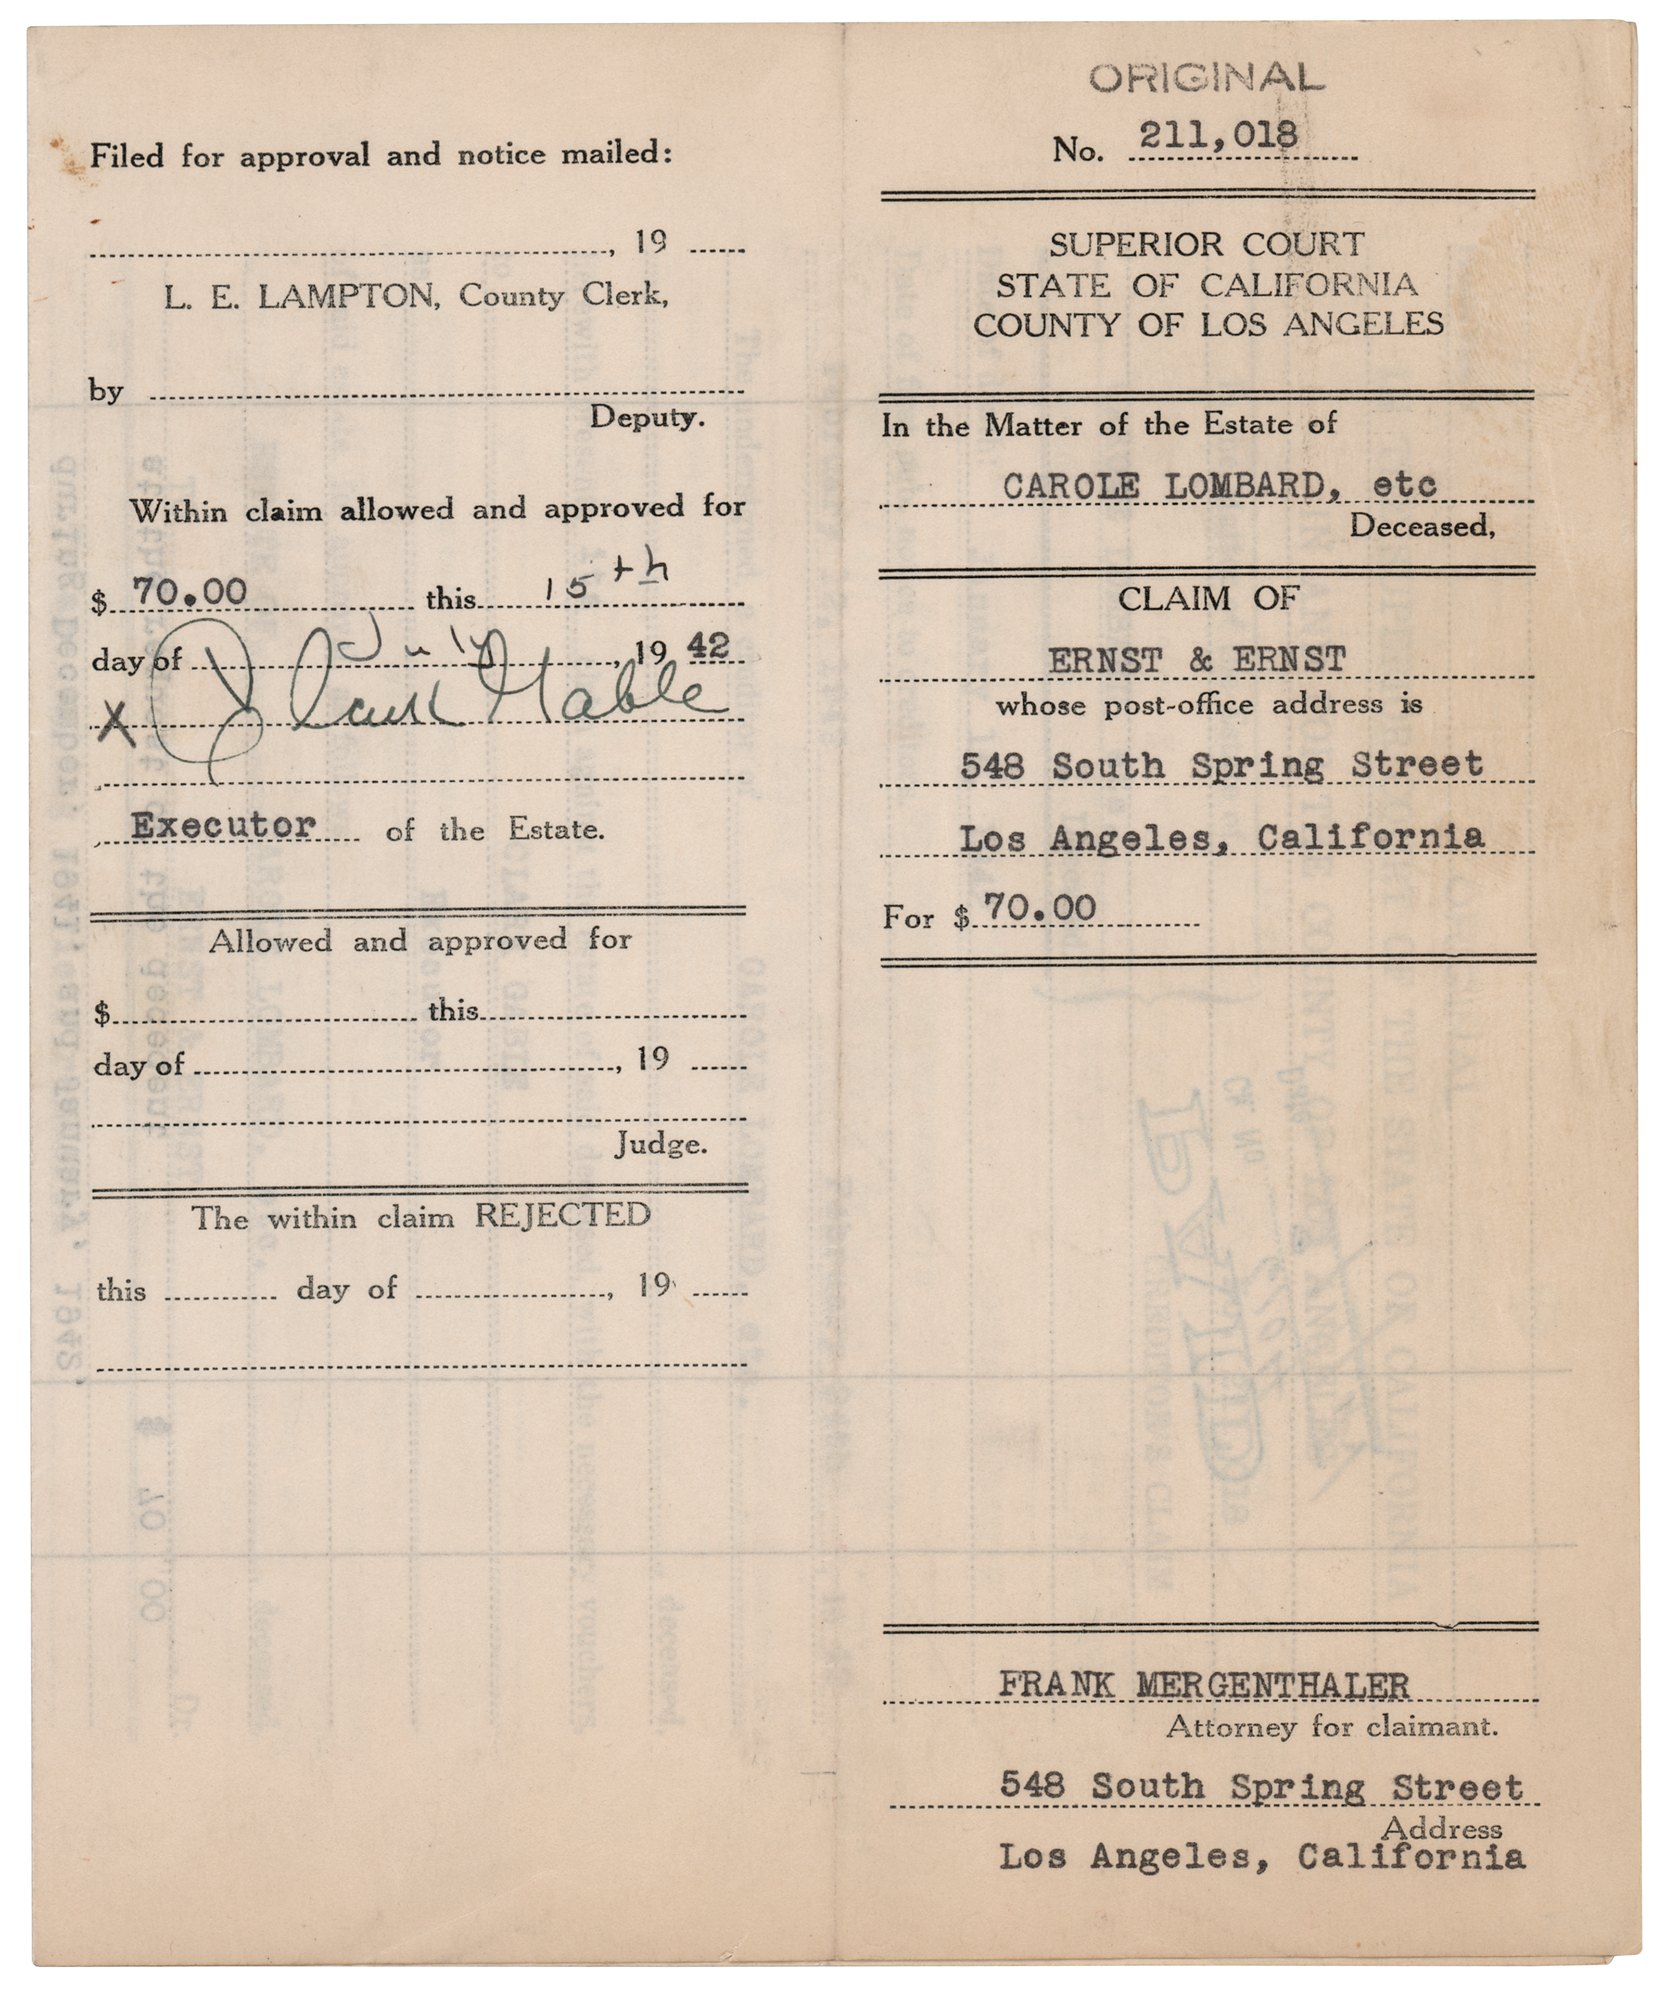 Filed for approval and notice mailed:
, 19
L. E. LAMPTON, County Clerk,
by
Deputy.
Within claim allowed and approved for
$ 70.00 this 15th
day of July, 19 42
X Clark Gable
Executor of the Estate.
Allowed and approved for
$ this
day of , 19
Judge.
The within claim REJECTED
this day of , 19
ORIGINAL
No. 211,018
SUPERIOR COURT
STATE OF CALIFORNIA
COUNTY OF LOS ANGELES
In the Matter of the Estate of
CAROLE LOMBARD, etc
Deceased,
CLAIM OF
ERNST & ERNST
whose post-office address is
548 South Spring Street
Los Angeles, California
For $ 70.00
FRANK MERGENTHALER
Attorney for claimant.
548 South Spring Street
Address
Los Angeles, California